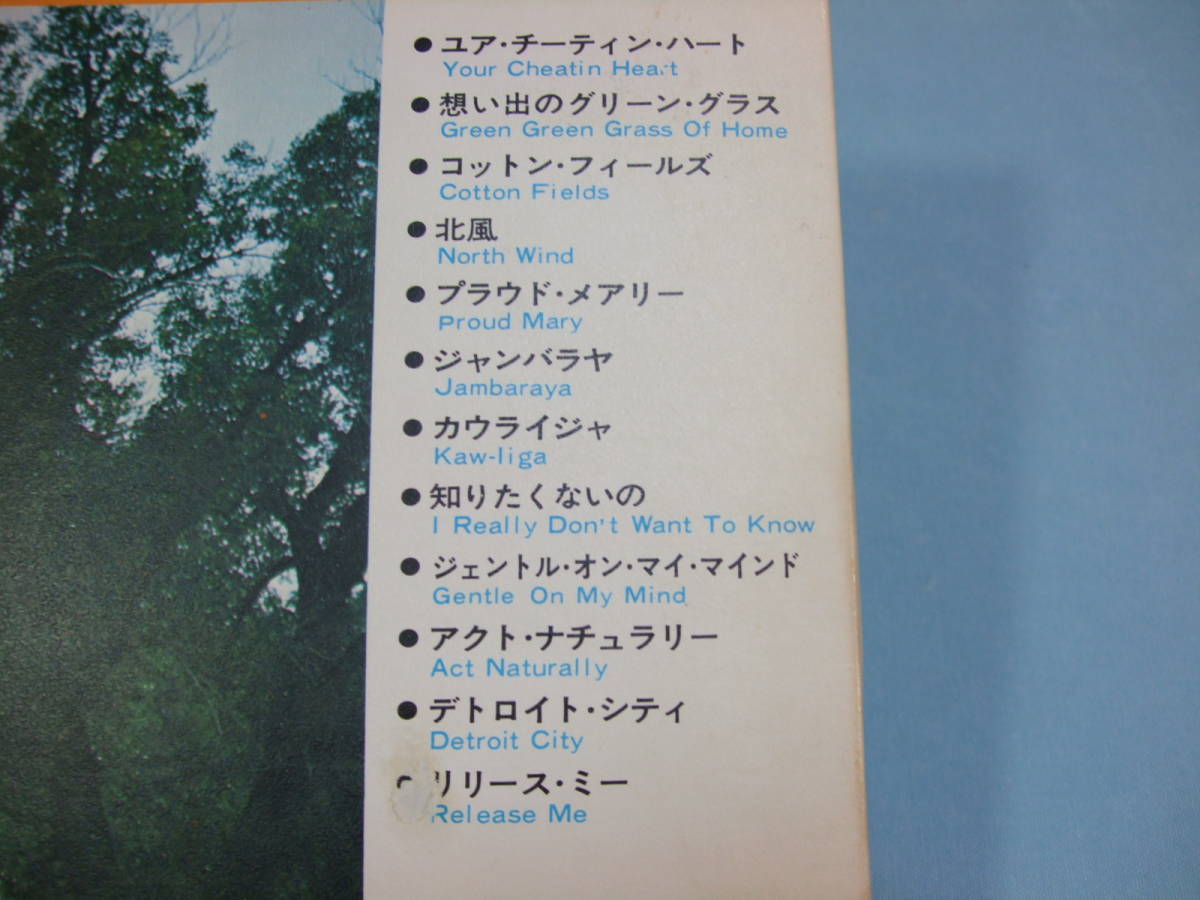 ● ユア・チーティン・ハート
Your Cheatin Heart
● 想い出のグリーン・グラス
Green Green Grass Of Home
● コットン・フィールズ
Cotton Fields
● 北風
North Wind
● プラウド・メアリー
Proud Mary
● ジャンバラヤ
Jambaraya
● カウライジャ
Kaw-liga
● 知りたくないの
I Really Don't Want To Know
● ジェントル・オン・マイ・マインド
Gentle On My Mind
● アクト・ナチュラリー
Act Naturally
● デトロイト・シティ
Detroit City
● リリース・ミー
Release Me